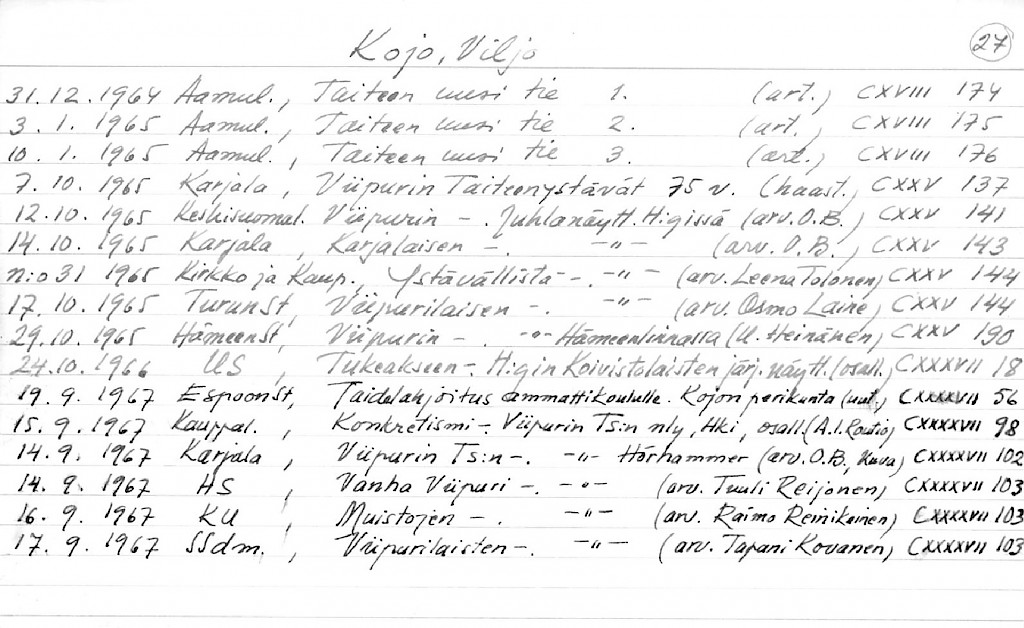 Kojo, Viljo 27
31.12.1964 Aamul., Taiteen uusi tie 1. (art.) CXVIII 174
3. 1. 1965 Aamul., Taiteen uusi tie 2. (art.) CXVIII 175
10. 1. 1965 Aamul., Taiteen uusi tie 3. (art.) CXVIII 176
7. 10. 1965 Karjala, Viipurin Taiteenystävät 75 v. (haast.) CXXV 137
12.10. 1965 Keskisuomal. Viipurin -. Juhlanäytt. H:gissä (arv. O.B.) CXXV 141
14. 10. 1965 Karjala, Karjalaisen -. -"- (arv. O.B.) CXXV 143
n:o 31 1965 Kirkko ja Kaup., Ystävällistä -. -"- (arv. Leena Tolonen) CXXV 144
17. 10. 1965 TurunSt, Viipurilaisen -. -"- (arv. Osmo Laine) CXXV 144
29.10. 1965 HämeenSt, Viipurin -. -"- Hämeenlinnassa (U. Heinänen) CXXV 190
24.10. 1966 US, Tukeakseen -. H:gin Koivistolaisten järj. näytt. (osall.) CXXXVII 18
19. 9. 1967 EspoonSt, Taidelahjoitus ammattikoululle. Kojon perikunta (uut.) CXXXXVII 56
15. 9. 1967 Kauppal., Konkretismi -. Viipurin Ts:n nly, Hki, osall. (A.I. Routio) CXXXXVII 98
14. 9. 1967 Karjala, Viipurin Ts:n -. -"- Hörhammer (arv. O.B., kuva) CXXXXVII 102
14. 9. 1967 HS, Vanha Viipuri -. -"- (arv. Tuuli Reijonen) CXXXXVII 103
16. 9. 1967 KU, Muistojen -. -"- (arv. Raimo Reinikainen) CXXXXVII 103
17. 9. 1967 SSdm., Viipurilaisten -. -"- (arv. Tapani Kovanen) CXXXXVII 103